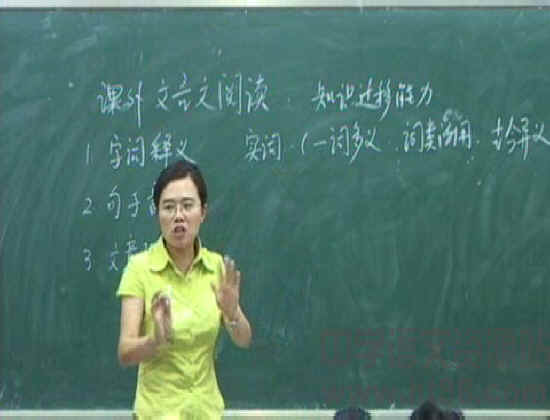 课外文言文阅读：知识迁移能力
1 字词释义 实词·(一词多义 词类活用 古今异义
2 句子
3 文章
中学语文资源网